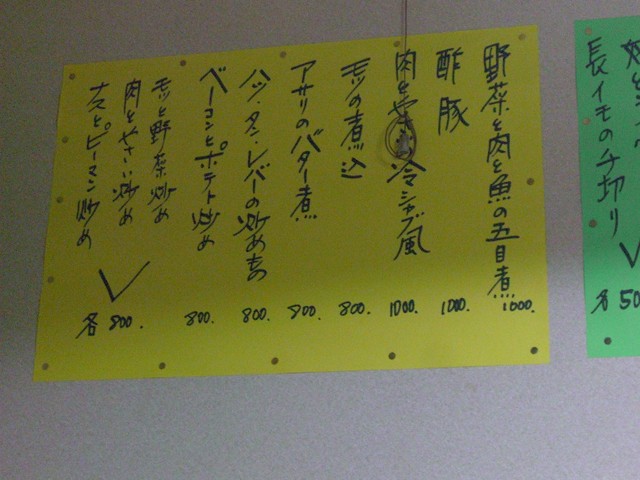 長イモの千切り
各 50
野菜と肉と魚の五目煮 1000.
酢豚 1000.
肉とやさい冷シャブ風 1000.
モツの煮込 800.
アサリのバター煮 800.
ハツ・タン・レバーの炒めもの 800.
ベーコンとポテト炒め 800.
モツと野菜炒め
肉とやさい炒め
ナスとピーマン炒め
各 800.